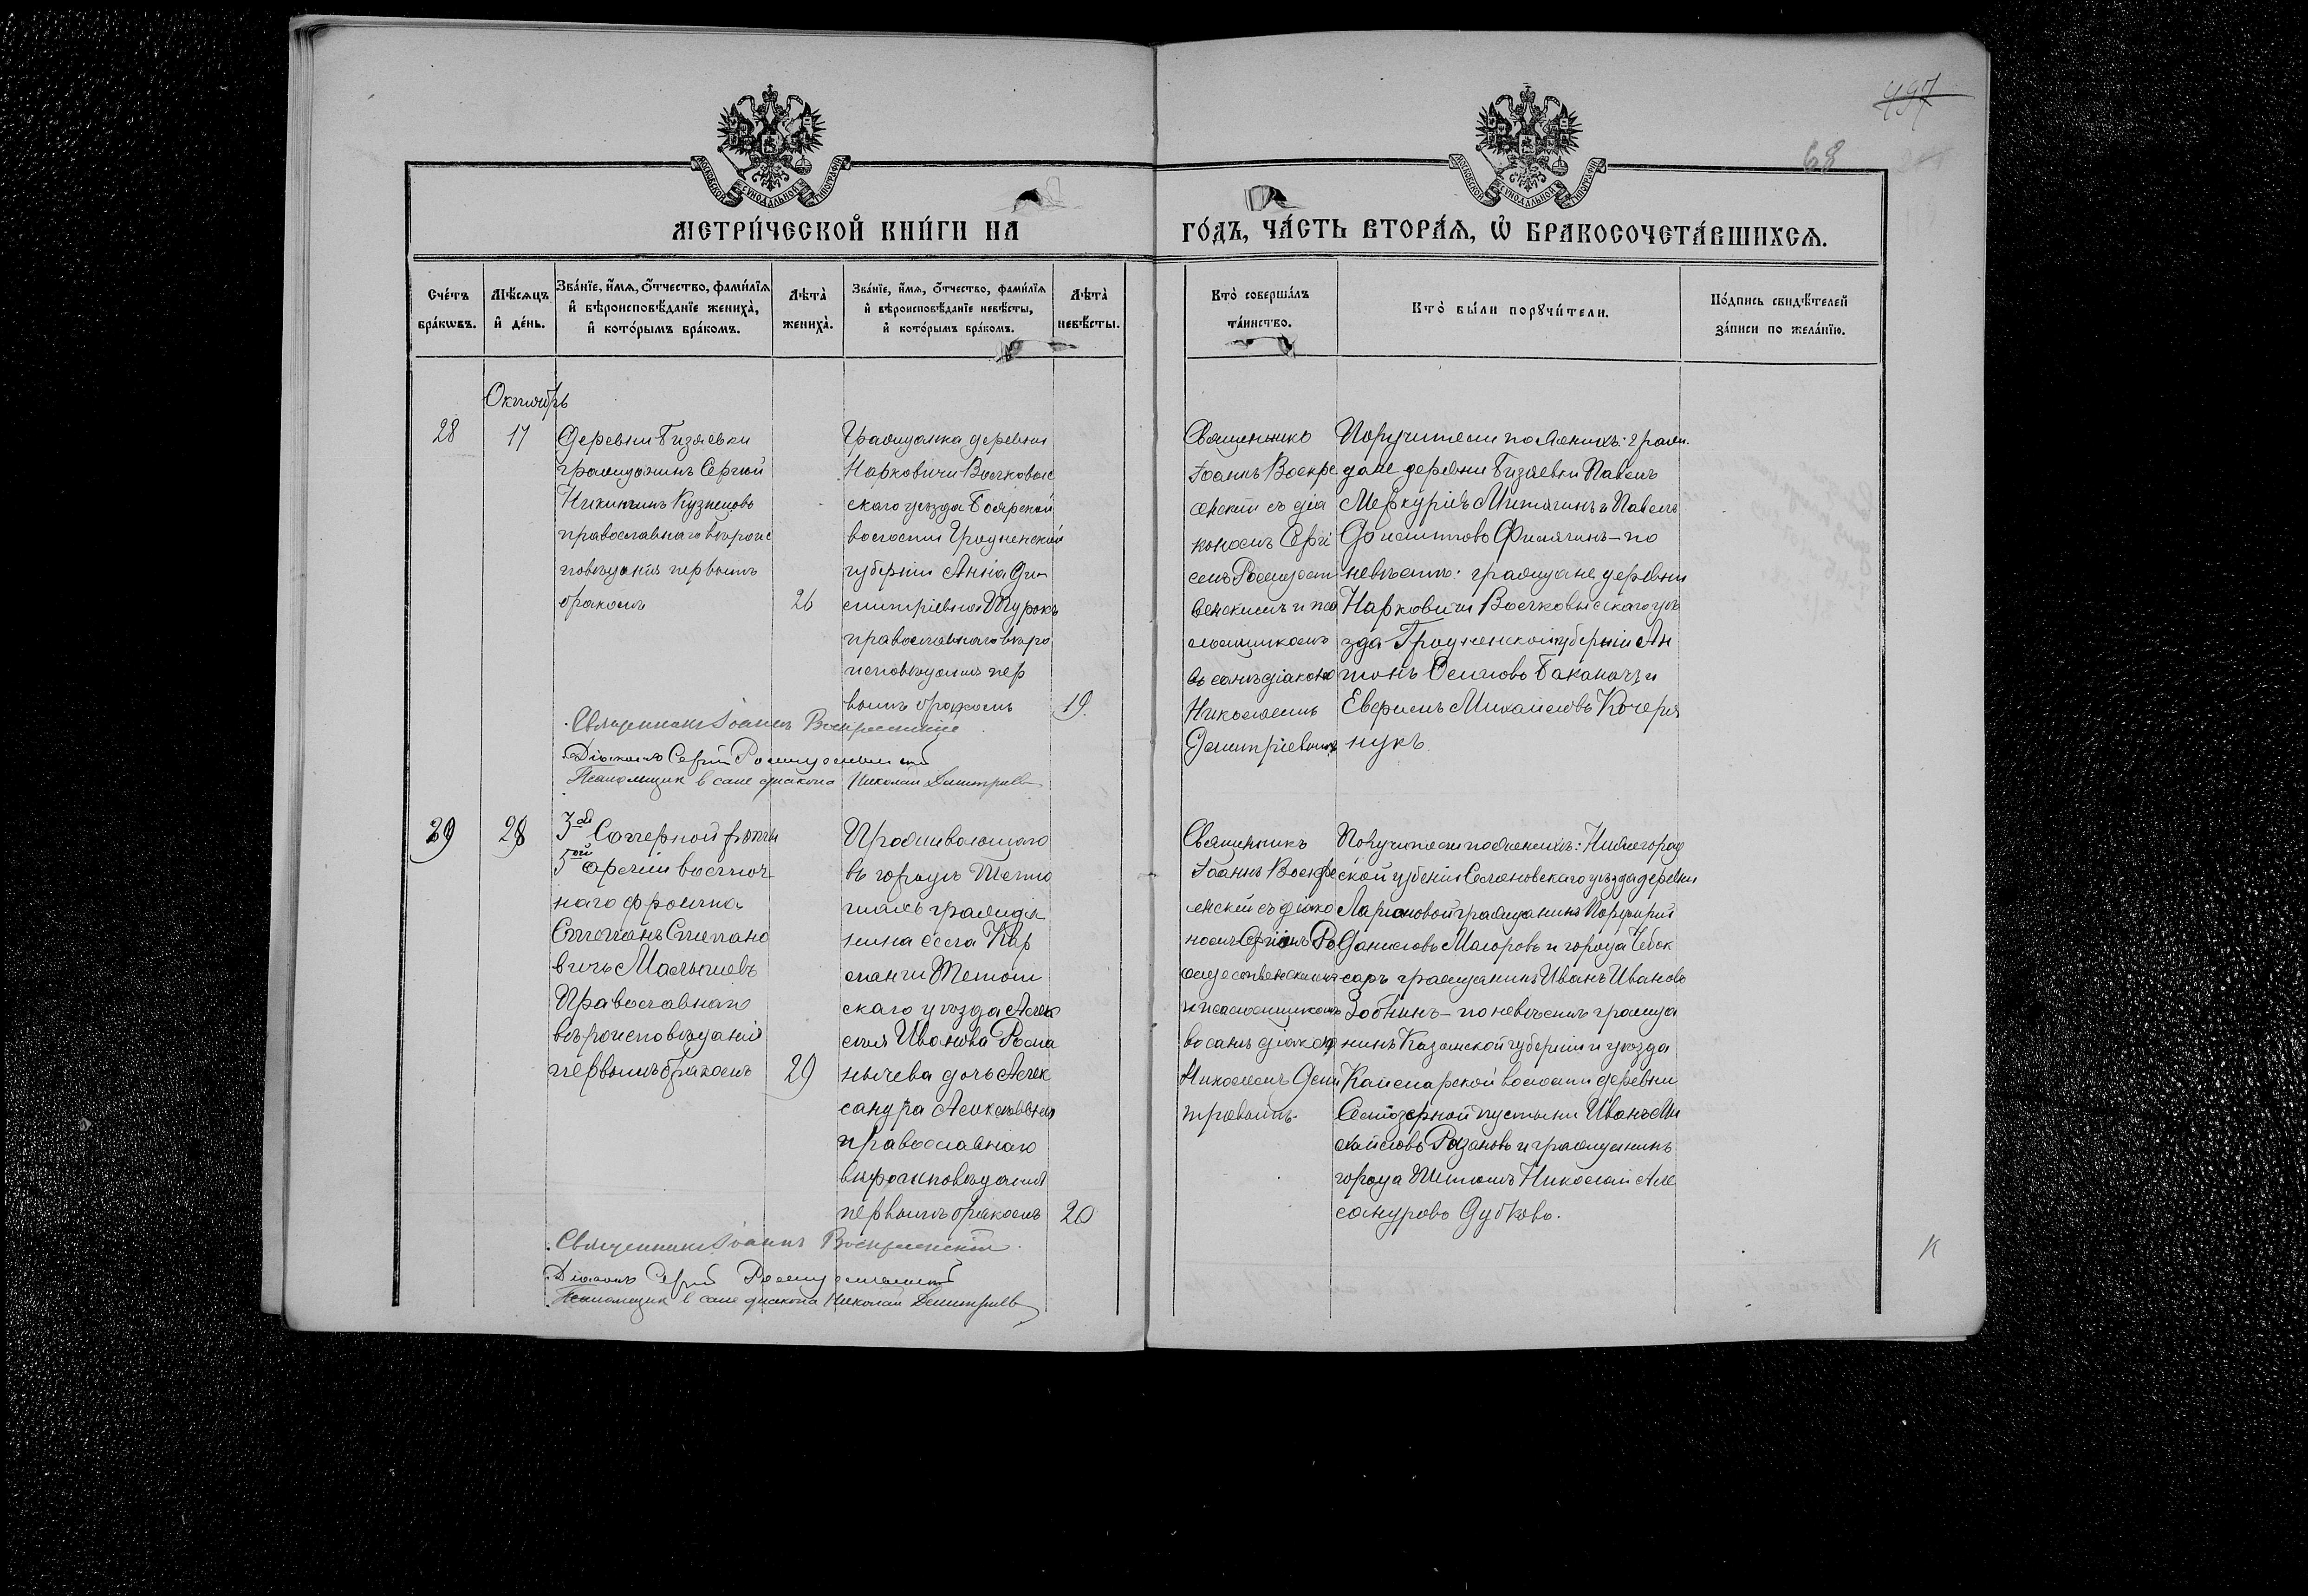 497
68
МОСКОВСКОЙ СѴНОДАЛЬНОЙ ТИПОГРАФІИ
МОСКОВСКОЙ СѴНОДАЛЬНОЙ ТИПОГРАФІИ
МЕТРИ́ЧЕСКОЙ КНИ́ГИ НА
ГО́ДЪ, ЧА́СТЬ ВТОРА́Я, Ѡ БРАКОСОЧЕТА́ВШИХСЯ.
Сче́тъ
бра́кѡвъ.
Мѣ́сяцъ
и де́нь.
Зва́нїе, и́мя, о́тчество, фами́лїя
и вѣроисповѣ́данїе жениха̀,
и кото́рымъ бра́комъ.
Лѣта̀
жениха̀.
Зва́нїе, и́мя, о́тчество, фами́лїя
и вѣроисповѣ́данїе невѣ́сты,
и кото́рымъ бра́комъ.
Лѣта̀
невѣ́сты.
Кто̀ соверша́лъ
та́инство.
Кто̀ бы́ли порꙋчи́тели.
По́дпись свидѣ́телей
за́писи по жела́нїю.
Октябрь
28
17
Деревни Бизяевки
гражданинъ Сергій
Никитинъ Кузнецовъ
православнаго вѣроис
повѣданія первымъ
бракомъ
26
Гражданка деревни
Нарковичи Волковыс
скаго уѣзда Боярской
волости Гродненской
губерніи Анна Ди
митріевна Турокъ
православнаго вѣро
исповѣданія пер
вымъ бракомъ
19.
Священникъ
Іоаннъ Воскре
сенскій съ діа
кономъ Сергі
емъ Рождест
венскимъ и пса
ломщикомъ
въ санѣ діакона
Николаемъ
Димитріевымъ
Поручители по женихѣ: граж.
дане деревни Бизяевки Павелъ
Меркурьевъ Митягинъ и Павелъ
Филягинъ – по
невѣстѣ: граждане деревни
Нарковичи Волковысскаго уѣ
зда Гродненской губерніи Ан
тонъ Осиповъ Баканачъ и
Евфимъ Михайловъ Кочеря
нукъ
Священникъ Іоаннъ Воскресенскій
Діаконъ Сергій Рождественскій
Псаломщик в сане диакона Николай Димитриев
29
28
3ей Саперной роты
5ой арміи восточ
наго фронта
Степанъ Степано
вичъ Малышевъ
Православнаго
вѣроисповѣданія
первымъ бракомъ
29
Проживающаго
въ городѣ Тетю
шахъ гражда
нина села Кар
Тетюш
скаго уѣзда Алек
сѣя Иванова Рома
нычева дочь Алек
сандра Алексѣевна
православнаго
вѣроисповѣданія
первымъ бракомъ
20
Священникъ
Іоаннъ Воскре
сенскій съ діако
номъ Сергіемъ Ро
ждественскимъ
и псаломщикомъ
въ санѣ діакона
Николаемъ Дими
тріевымъ.
Поручители по женихѣ: Нижегород
ской губерніи Семеновскаго уѣзда деревни
Ларіоновой гражданинъ Порфирій
Даниловъ Маіоровъ и города Чебок
саръ гражданинъ Иванъ Ивановъ
Зобнинъ – по невѣстѣ гражда
нинъ Казанской губерніи и уѣзда
Каймарской волости деревни
Семіозерной пустыни Иванъ Ми
хайловъ Разановъ и гражданинъ
города Тетюшъ Николай Алек
сандровъ Дубковъ.
Священникъ Іоаннъ Воскресенскій
Діаконъ Сергій Рождественскій
Псаломщик в сане диакона Николай Димитриев
К